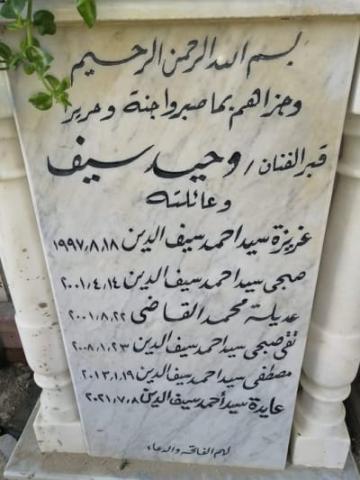 بسم الله الرحمن الرحيم
وجزاهم بما صبروا جنة وحريرا
قبر الفنان / وحيد سيف
وعائلته
عزيزة سيد احمد سيف الدين ١٩٩٧،٨،١٨
صبحى سيد احمد سيف الدين ٢٠٠١،٤،١٤
عديلة محمد القاضى ٢٠٠١،٨،٢٢
تقى صبحى سيد احمد سيف الدين ٢٠٠٨،١،٢٣
مصطفى سيد احمد سيف الدين ٢٠١٣،١،١٩
عايدة سيد أحمد سيف الدين ٢٠٢١،٧،٨
لهم الفاتحة والدعاء